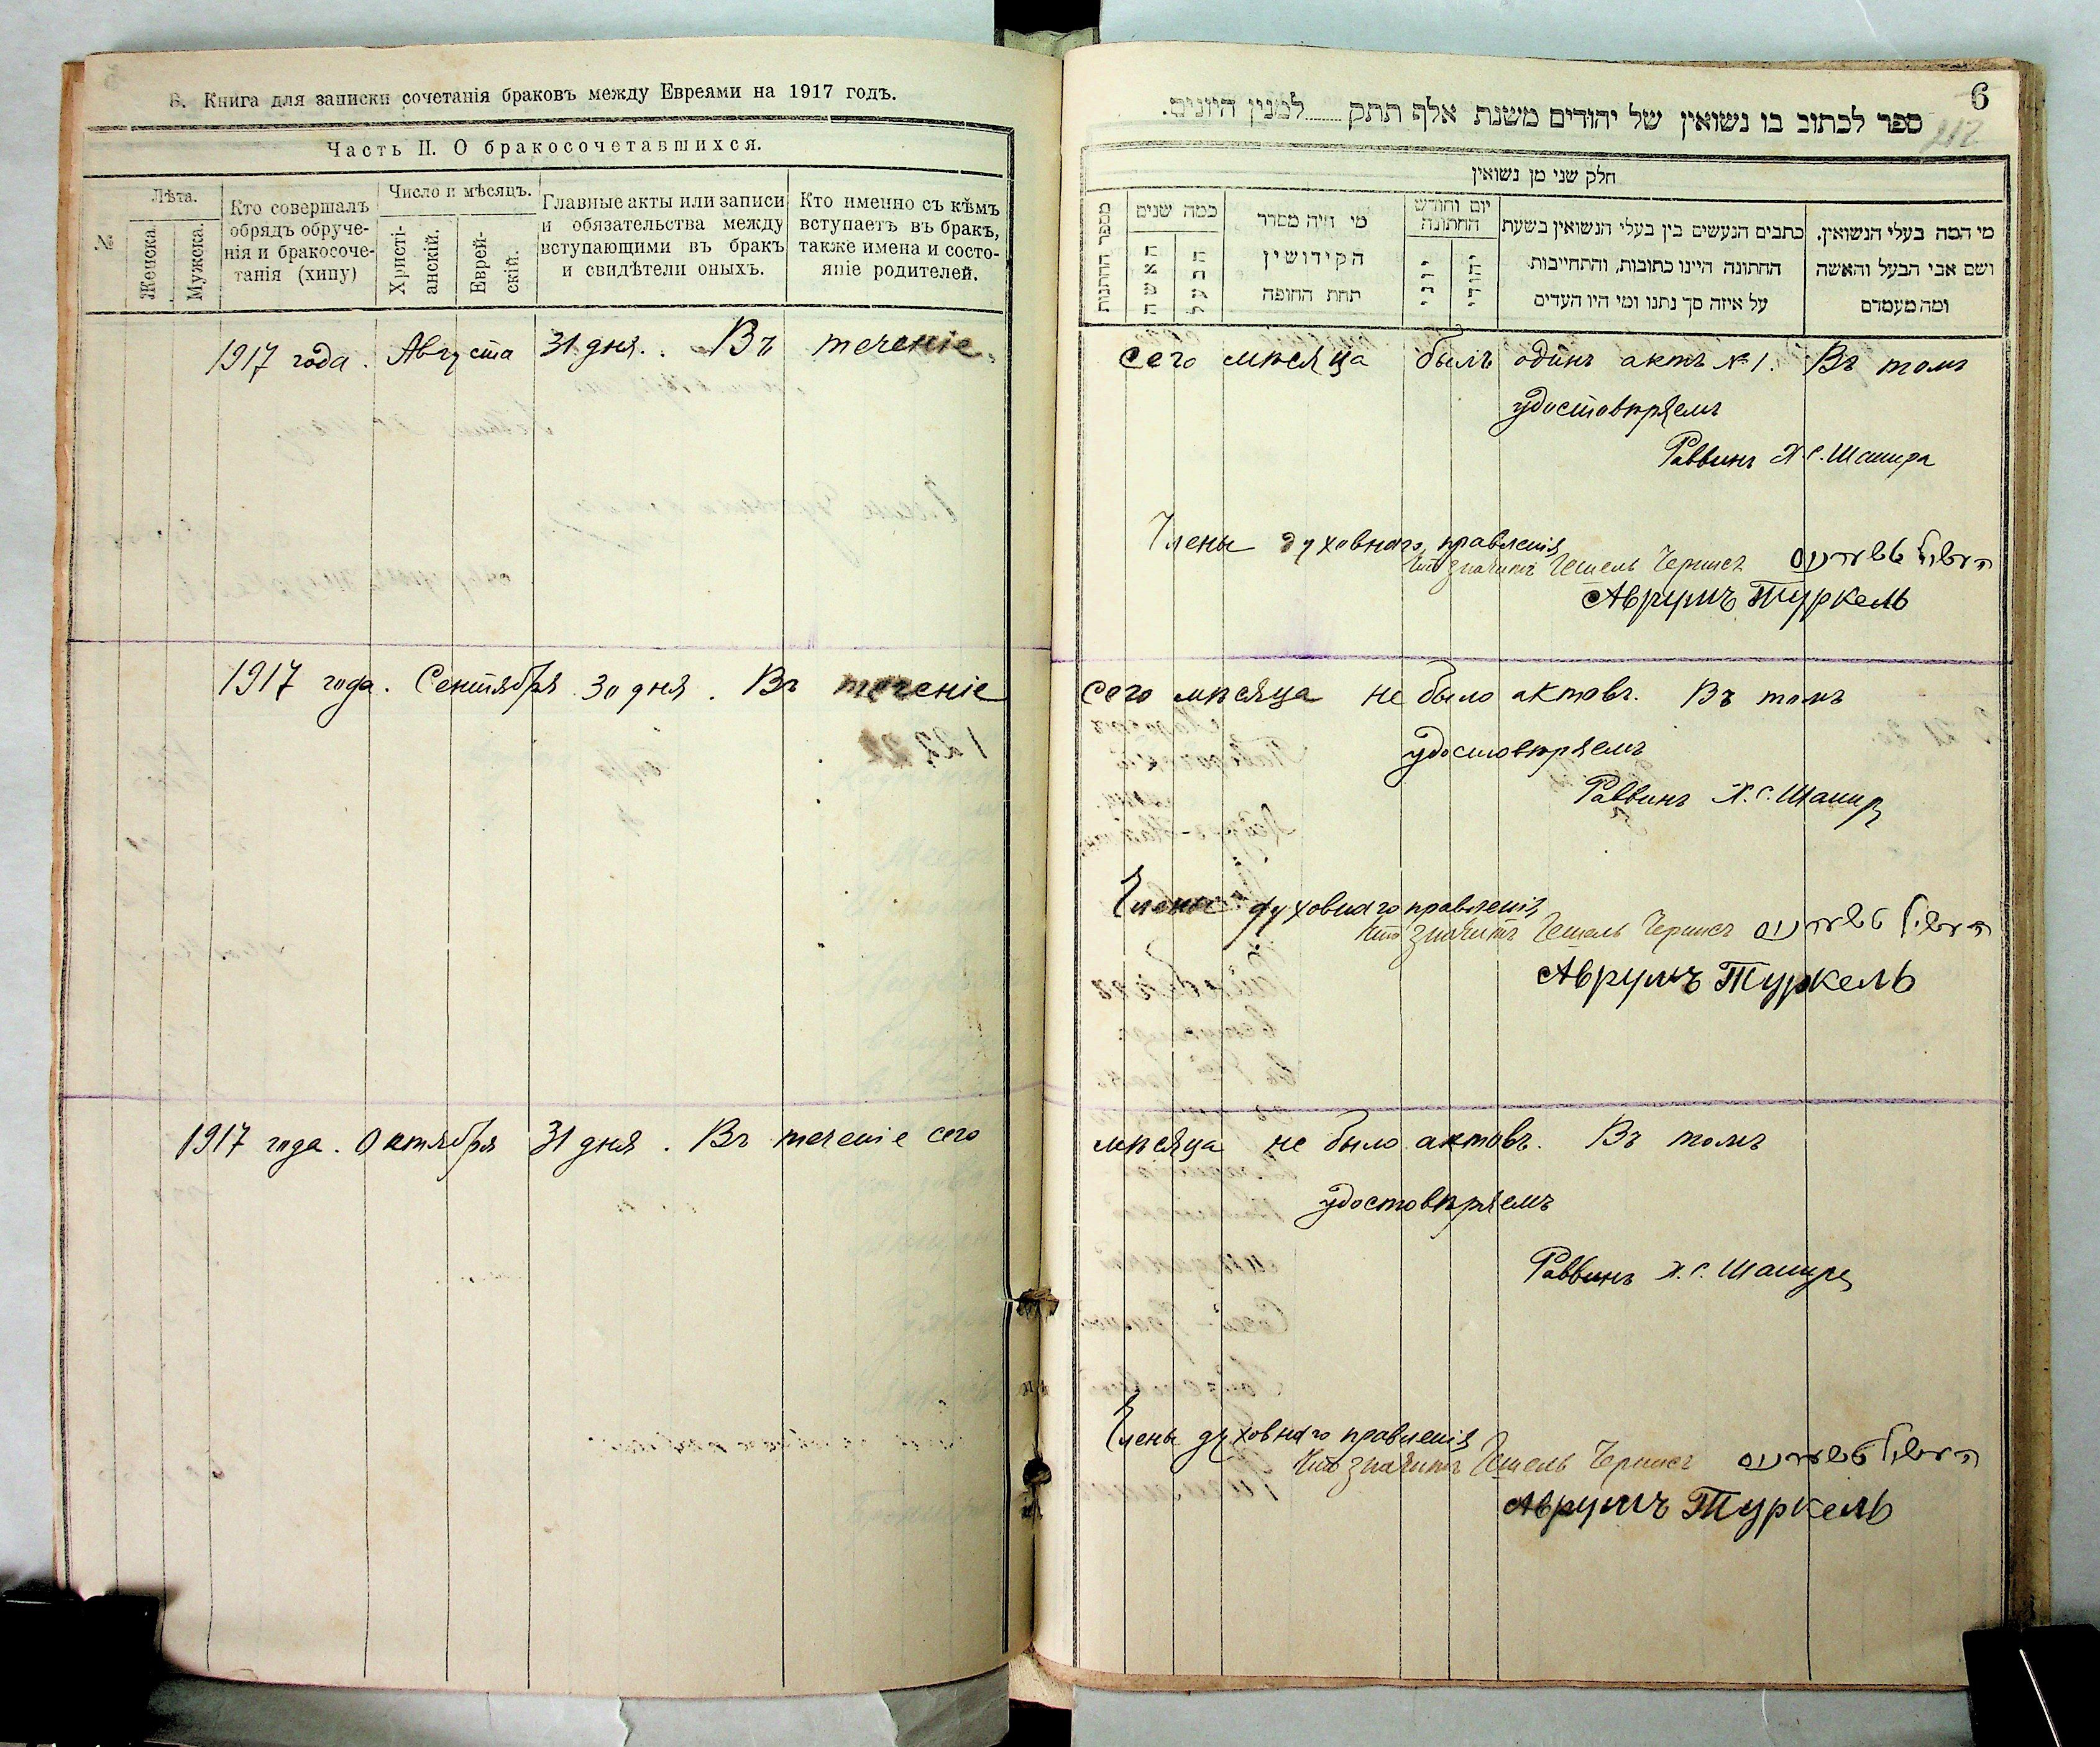 В. Книга для записки сочетанія браковъ между Евреями на 1917 годъ.
Часть II. О бракосочетавшихся.
№
Лѣта.
Женска.
Мужска.
Кто совершалъ
обрядъ обруче-
нія и бракосоче-
танія (хипу)
Число и мѣсяцъ.
Христі-
анскій.
Еврей-
скій.
Главные акты или записи
и обязательства между
вступающими въ бракъ
и свидѣтели оныхъ.
Кто именно съ кѣмъ
вступаетъ въ бракъ,
также имена и состо-
яніе родителей.
1917 года. Августа 31 дня. Въ теченіе
1917 года. Сентября 30 дня. Въ теченіе
1917 года. Октября 31 дня. Въ теченіе сего
6
ספר לכתוב בו נשואין של יהודים משנת אלף תתק......למנין היונים.
חלק שני מן נשואין
מי המה בעלי הנשואין.
ושם אבי הבעל והאשה
ומה מעמדם
כתבים הנעשים בין בעלי הנשואין בשעת
החתונה היינו כתובות, והתחייבות
על איזה סך נתנו ומי היו העדים
יום וחודש
החתונה
יהודי
יוני
מי היה מסדר
הקידושין
תחת החופה
כמה שנים
הבעל
האשה
מספר החתונות
сего мѣсяца былъ одинъ актъ № 1. Въ томъ
удостовѣряемъ
Раввинъ Х. С. Шапира
Члены духовнаго правленія
Что значитъ Гешель Чернисъ
Аврумъ Туркель
сего мѣсяца не было актовъ. Въ томъ
удостовѣряемъ
Раввинъ Х. С. Шапира
Члены духовнаго правленія
Что значитъ Гешель Чернисъ
Аврумъ Туркель
мѣсяца не было актовъ. Въ томъ
удостовѣряемъ
Раввинъ Х. С. Шапира
Члены духовнаго правленія
Что значитъ Гешель Чернисъ
Аврумъ Туркель